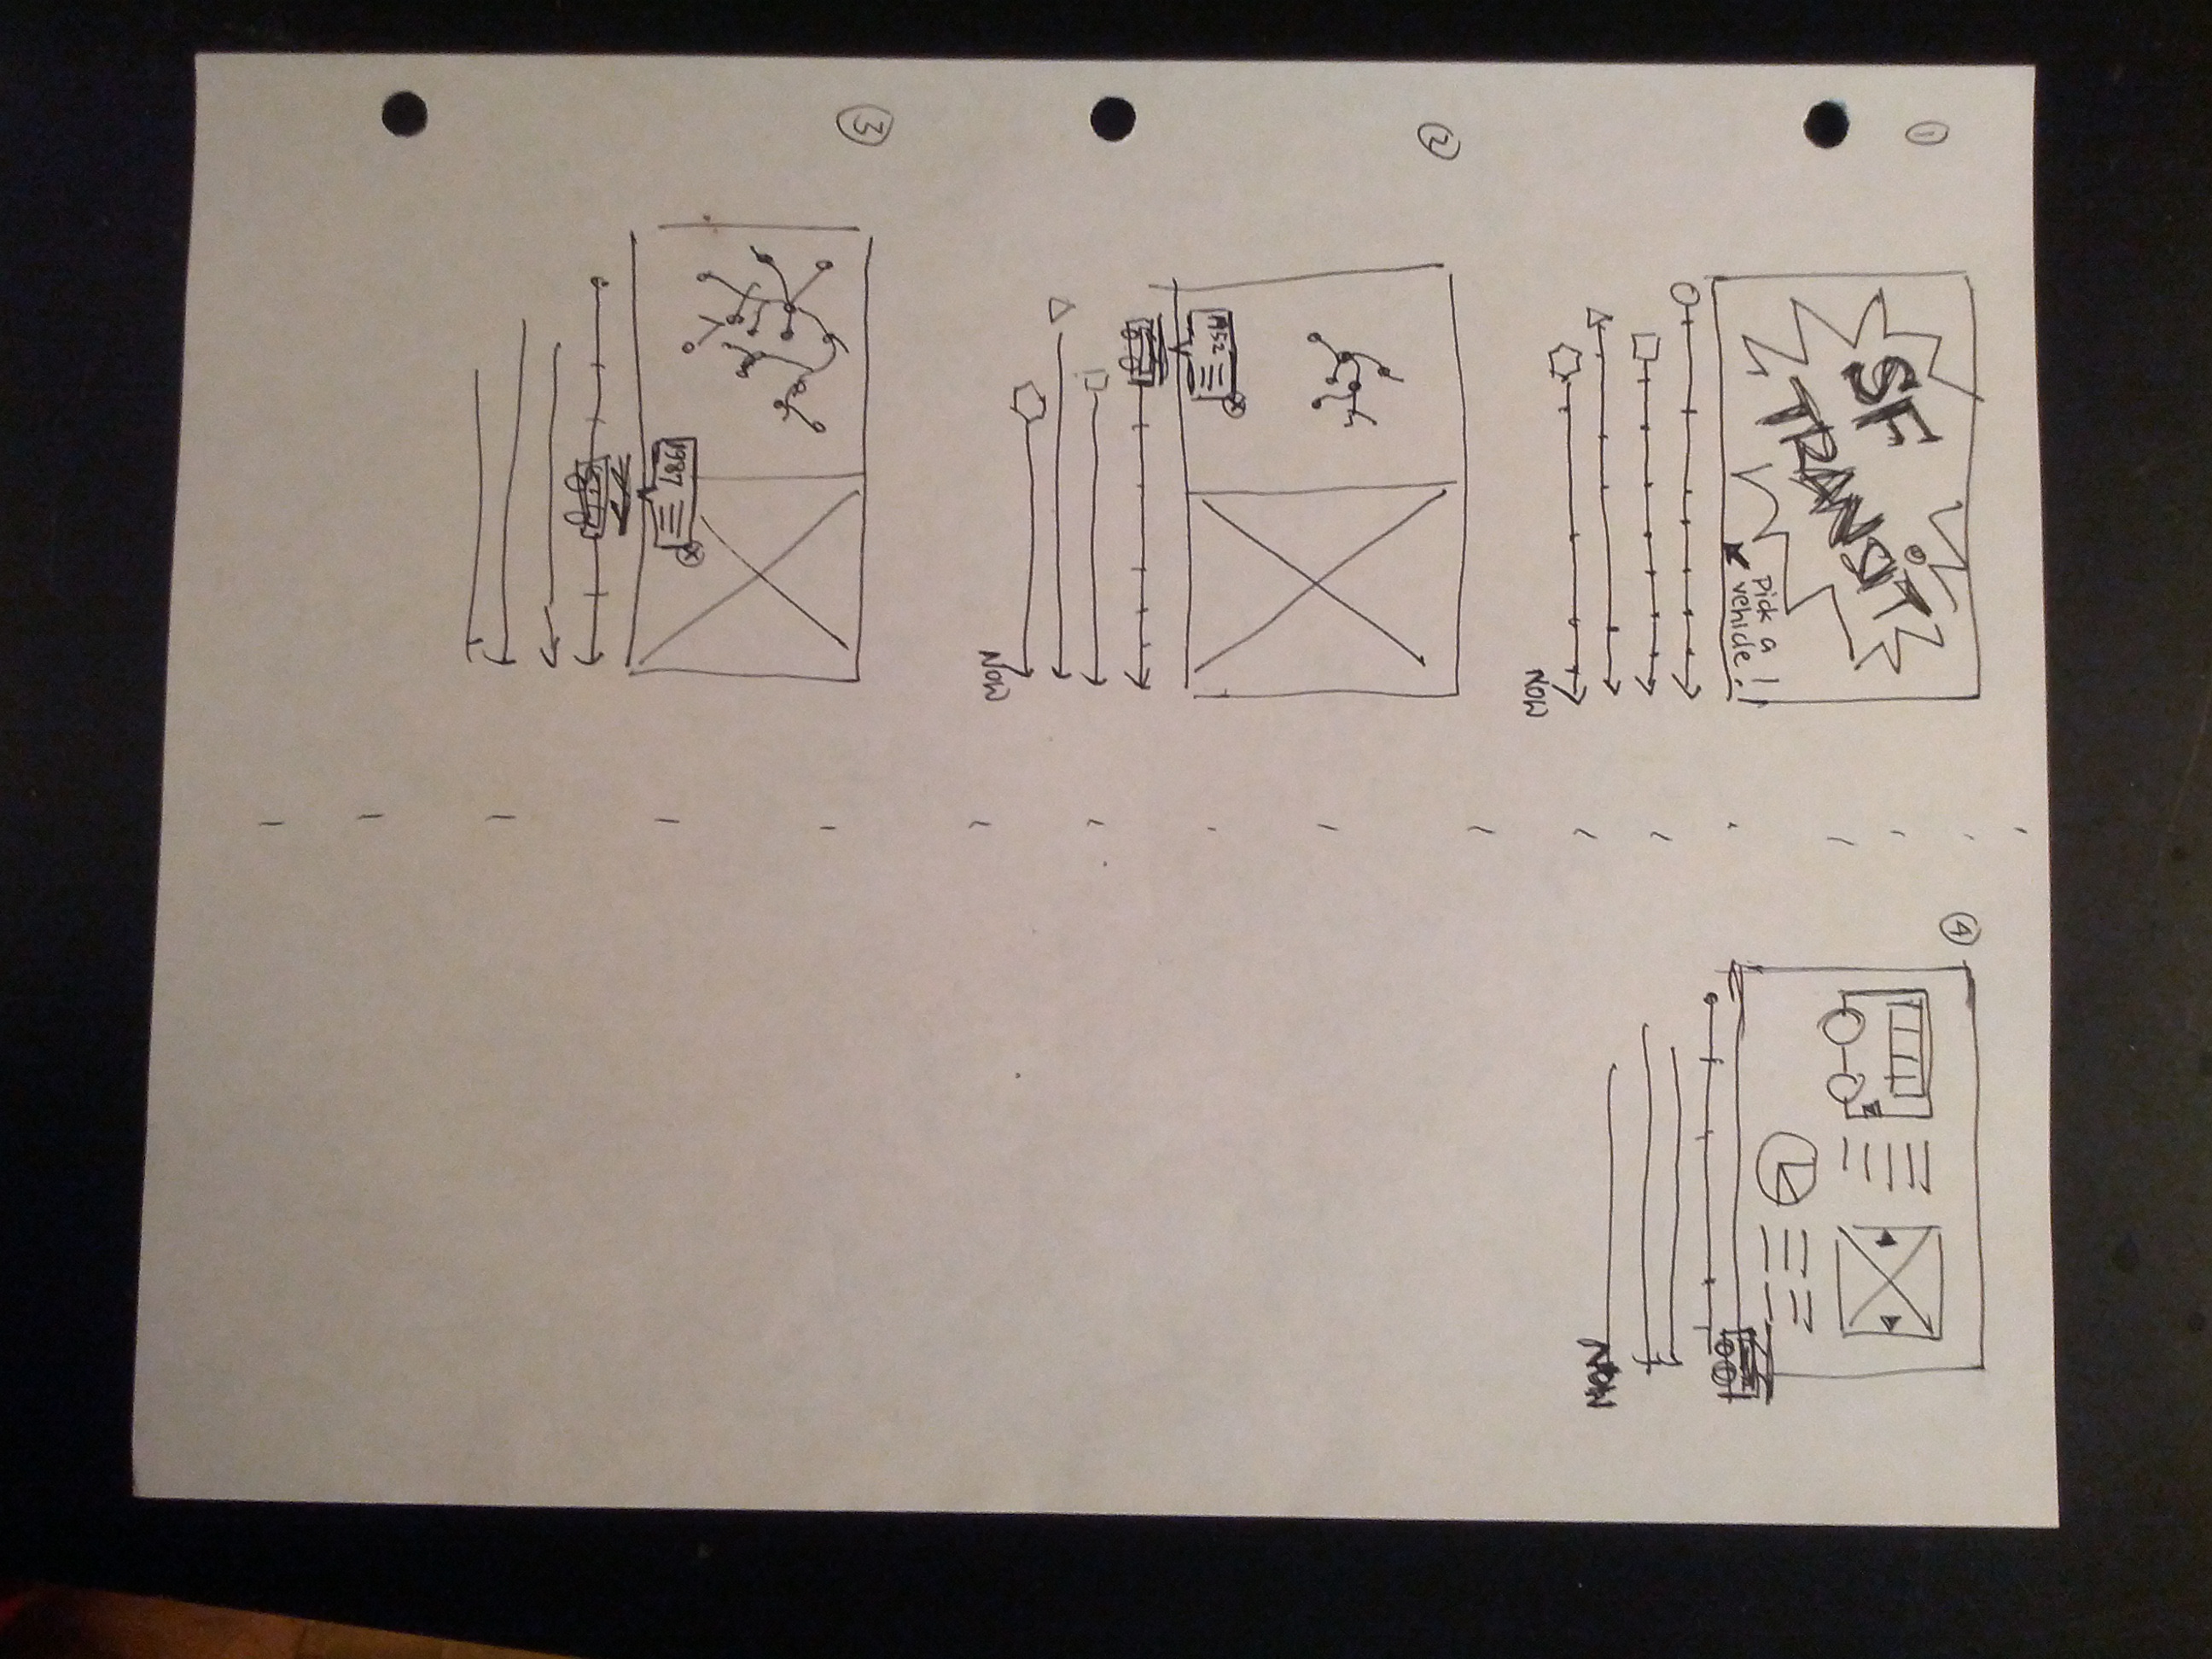 1
SF
TRANSIT
Pick a
vehicle!!
NOW
2
1952
NOW
3
1987
4
NOW